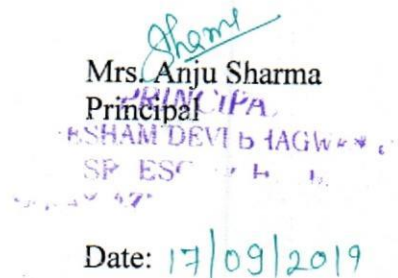 Mrs. Anju Sharma
Principal
PRINCIPA
ESHAM DEVI BHAGW
Date: 17/09/2019